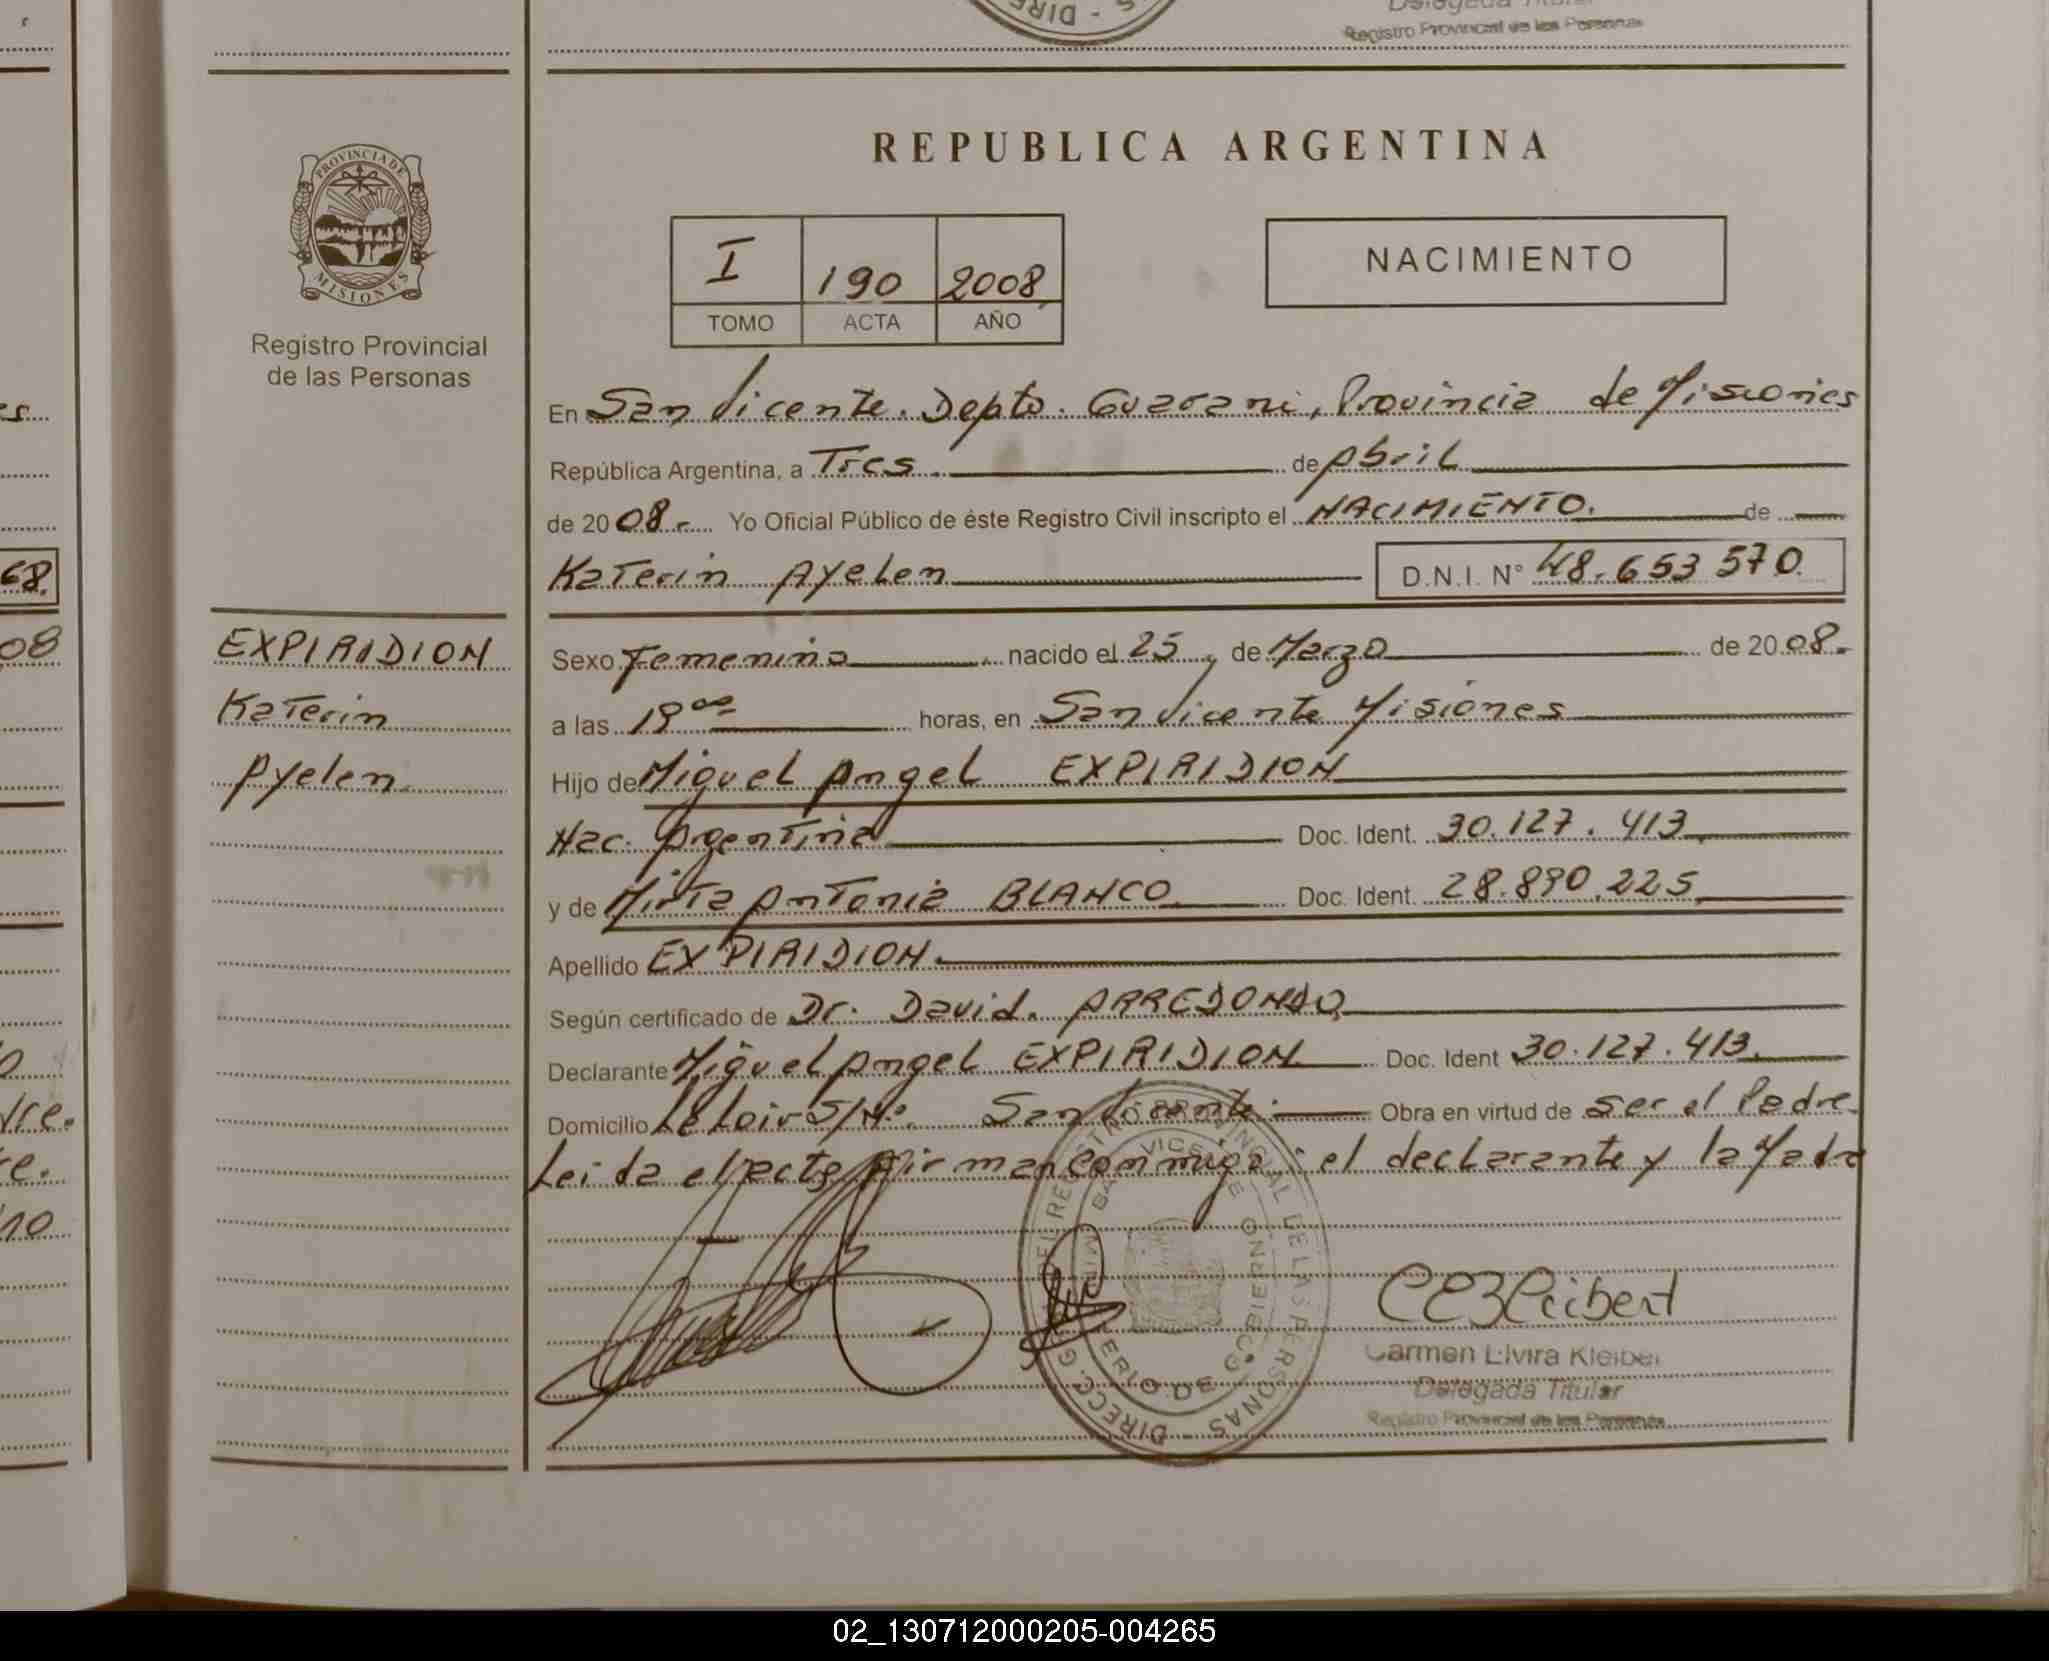 Delegada Titular
Registro Provincial de las Personas
REPUBLICA ARGENTINA
PROVINCIA DE
MISIONES
Registro Provincial
de las Personas
I 190 2008
TOMO ACTA AÑO
NACIMIENTO
En San Vicente. Depto. Guarani, Provincia de Misiones
República Argentina, a Tres. de Abril
de 2008.- Yo Oficial Público de éste Registro Civil inscripto el NACIMIENTO. de
Katerin Ayelen D.N.I. N° 48.653 570.
EXPIRIDION
Katerin
Ayelen.
Sexo Femenino nacido el 25, de Marzo de 2008.
a las 18 00 horas, en San Vicente Misiones
Hijo de Miguel Angel EXPIRIDION
Nac. Argentina Doc. Ident. 30.127.413
y de Mirta Antonia BLANCO. Doc. Ident. 28.890.225
Apellido EXPIRIDION.
Según certificado de Dr. David. ARREDONDO
Declarante Miguel Angel EXPIRIDION Doc. Ident 30.127.413.
Domicilio Leloir S/N°. San Vicente. Obra en virtud de ser el Padre.
Leida el acta firman conmigo: el declarante y la Madre
DIRECC. GRAL. DEL REGISTRO PROVINCIAL DE LAS PERSONAS
MINISTERIO DE GOBIERNO
SAN VICENTE
Carmen Elvira Kleibert
Delegada Titular
Registro Provincial de las Personas
68.
08
dre.
re.
10
02_130712000205-004265